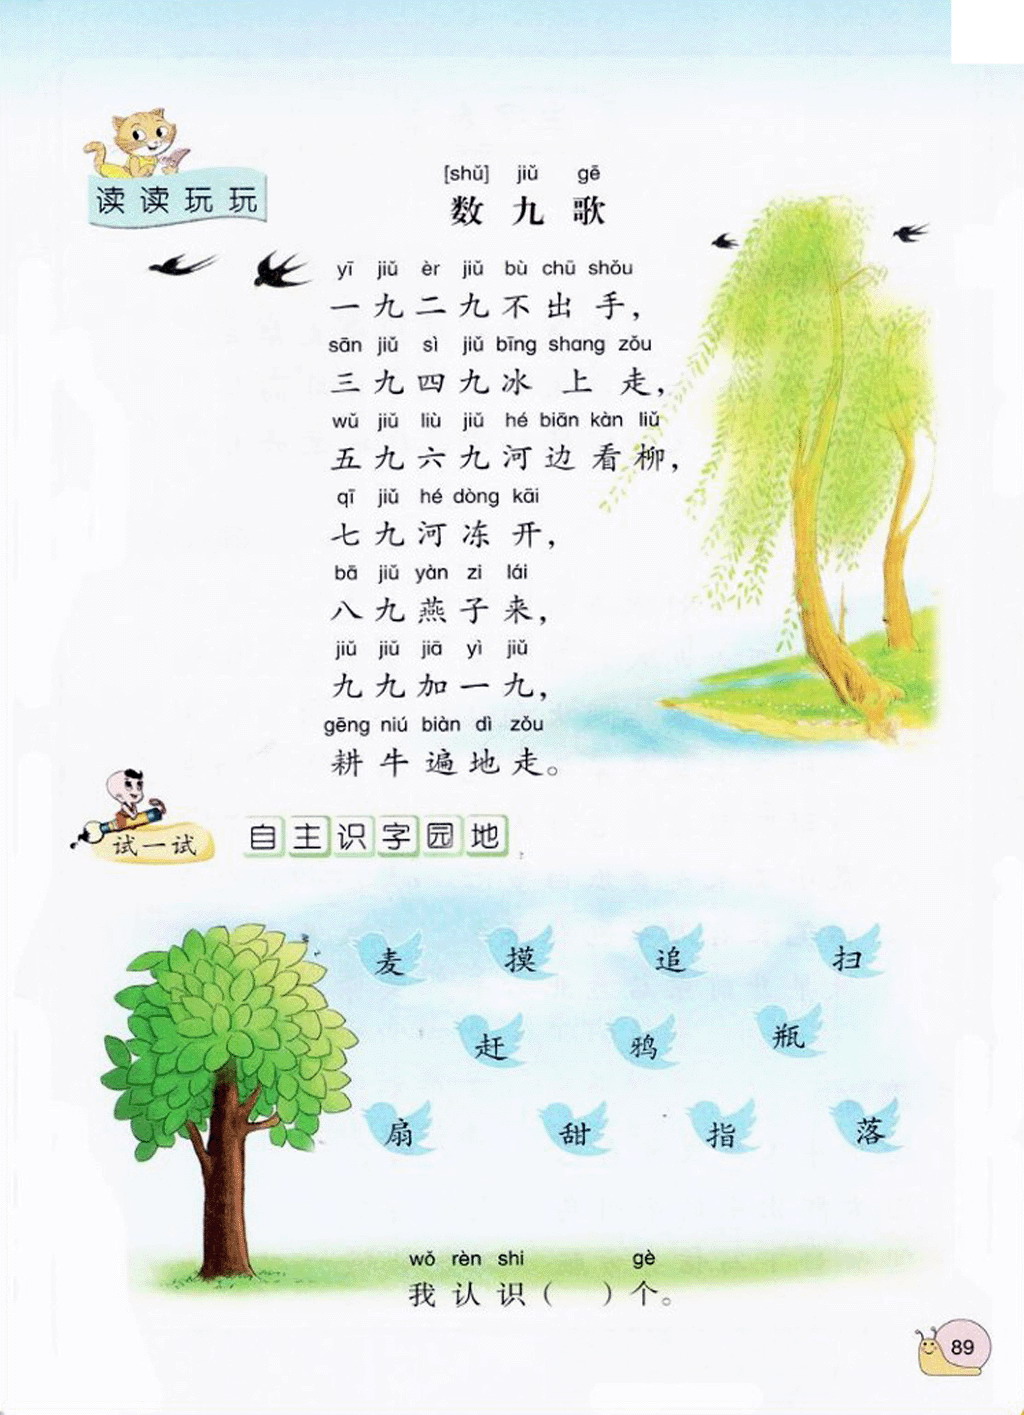 读读玩玩
[shǔ] jiǔ gē
数九歌
yī jiǔ èr jiǔ bù chū shǒu
一九二九不出手，
sān jiǔ sì jiǔ bīng shang zǒu
三九四九冰上走，
wǔ jiǔ liù jiǔ hé biān kàn liǔ
五九六九河边看柳，
qī jiǔ hé dòng kāi
七九河冻开，
bā jiǔ yàn zi lái
八九燕子来，
jiǔ jiǔ jiā yì jiǔ
九九加一九，
gēng niú biàn dì zǒu
耕牛遍地走。
试一试
自主识字园地
麦 摸 追 扫
赶 鸦 瓶
扇 甜 指 落
wǒ rèn shi gè
我认识（ ）个。
89